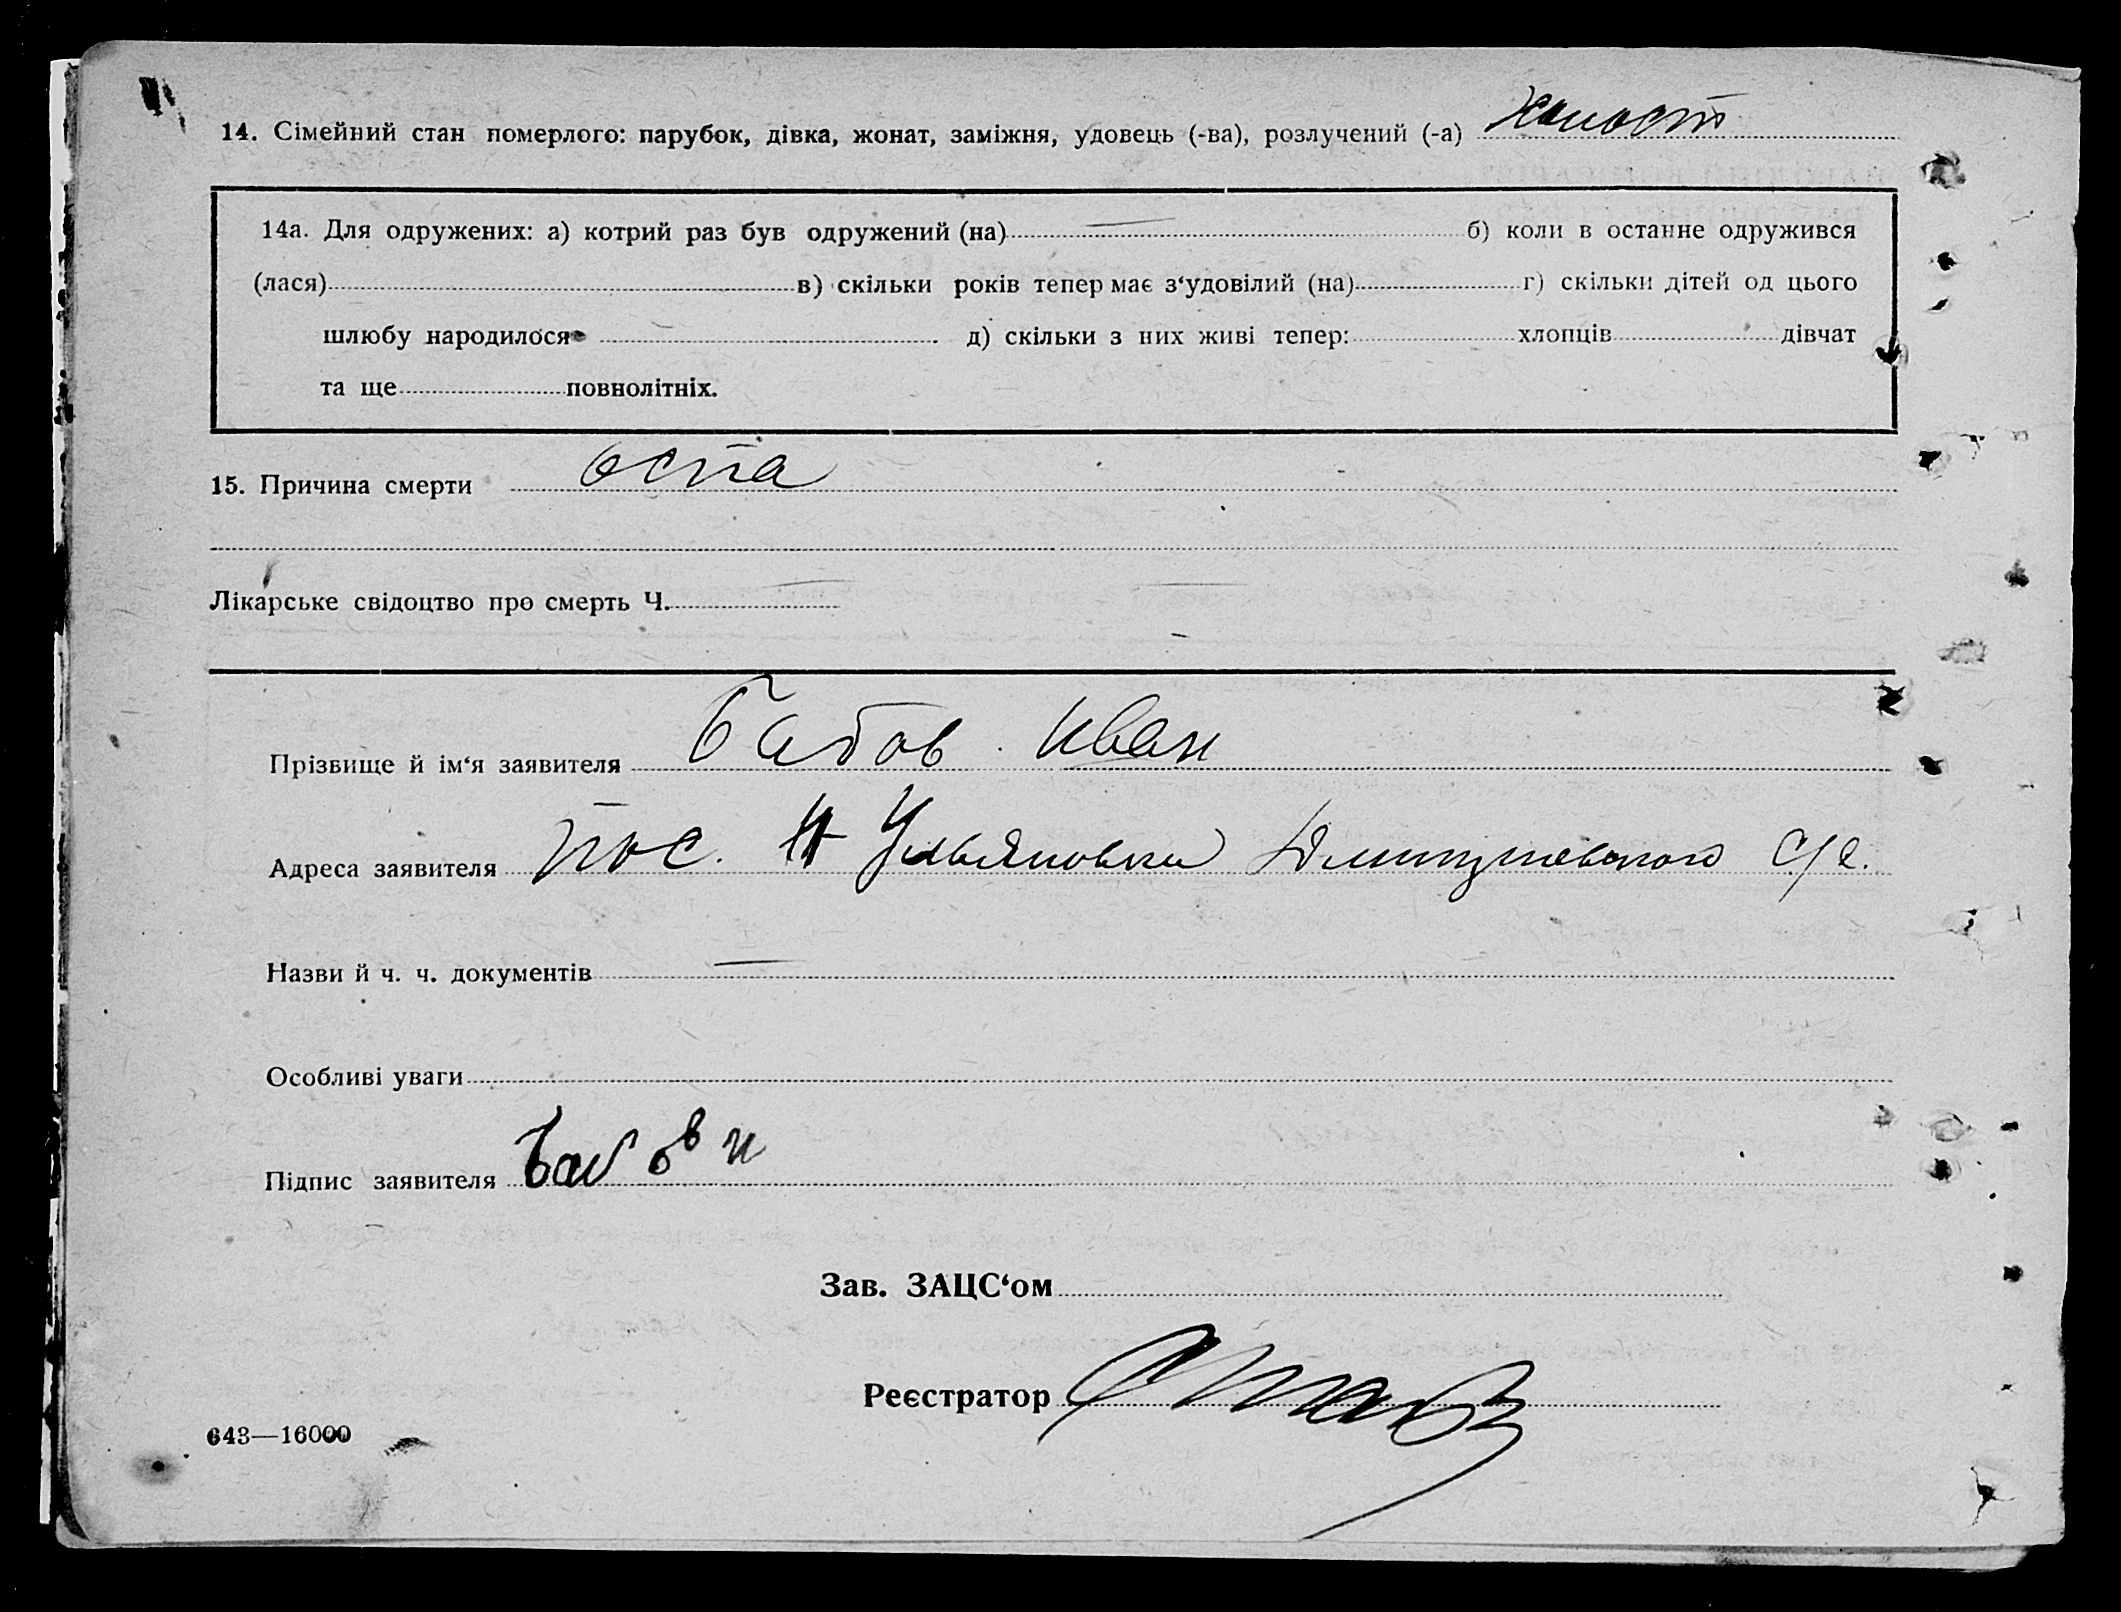 14. Сімейний стан померлого: парубок, дівка, жонат, заміжня, удовець (-ва), розлучений (-а) холост
14а. Для одружених: а) котрий раз був одружений (на) — б) коли в останне одружився
(лася) в) скільки років тепер має з‘удовілий (на) г) скільки дітей од цього
шлюбу народилося д) скільки з них живі тепер: хлопців дівчат
та ще повнолітніх.
15. Причина смерти оспа
Лікарське свідоцтво про смерть Ч. —
Прізвище й ім‘я заявителя Бабов Иван
Адреса заявителя пос. Н Ульяновка с/с.
Назви й ч. ч. документів —
Особливі уваги
Підпис заявителя Бабов И
Зав. ЗАЦС‘ом
Реєстратор
643—16000